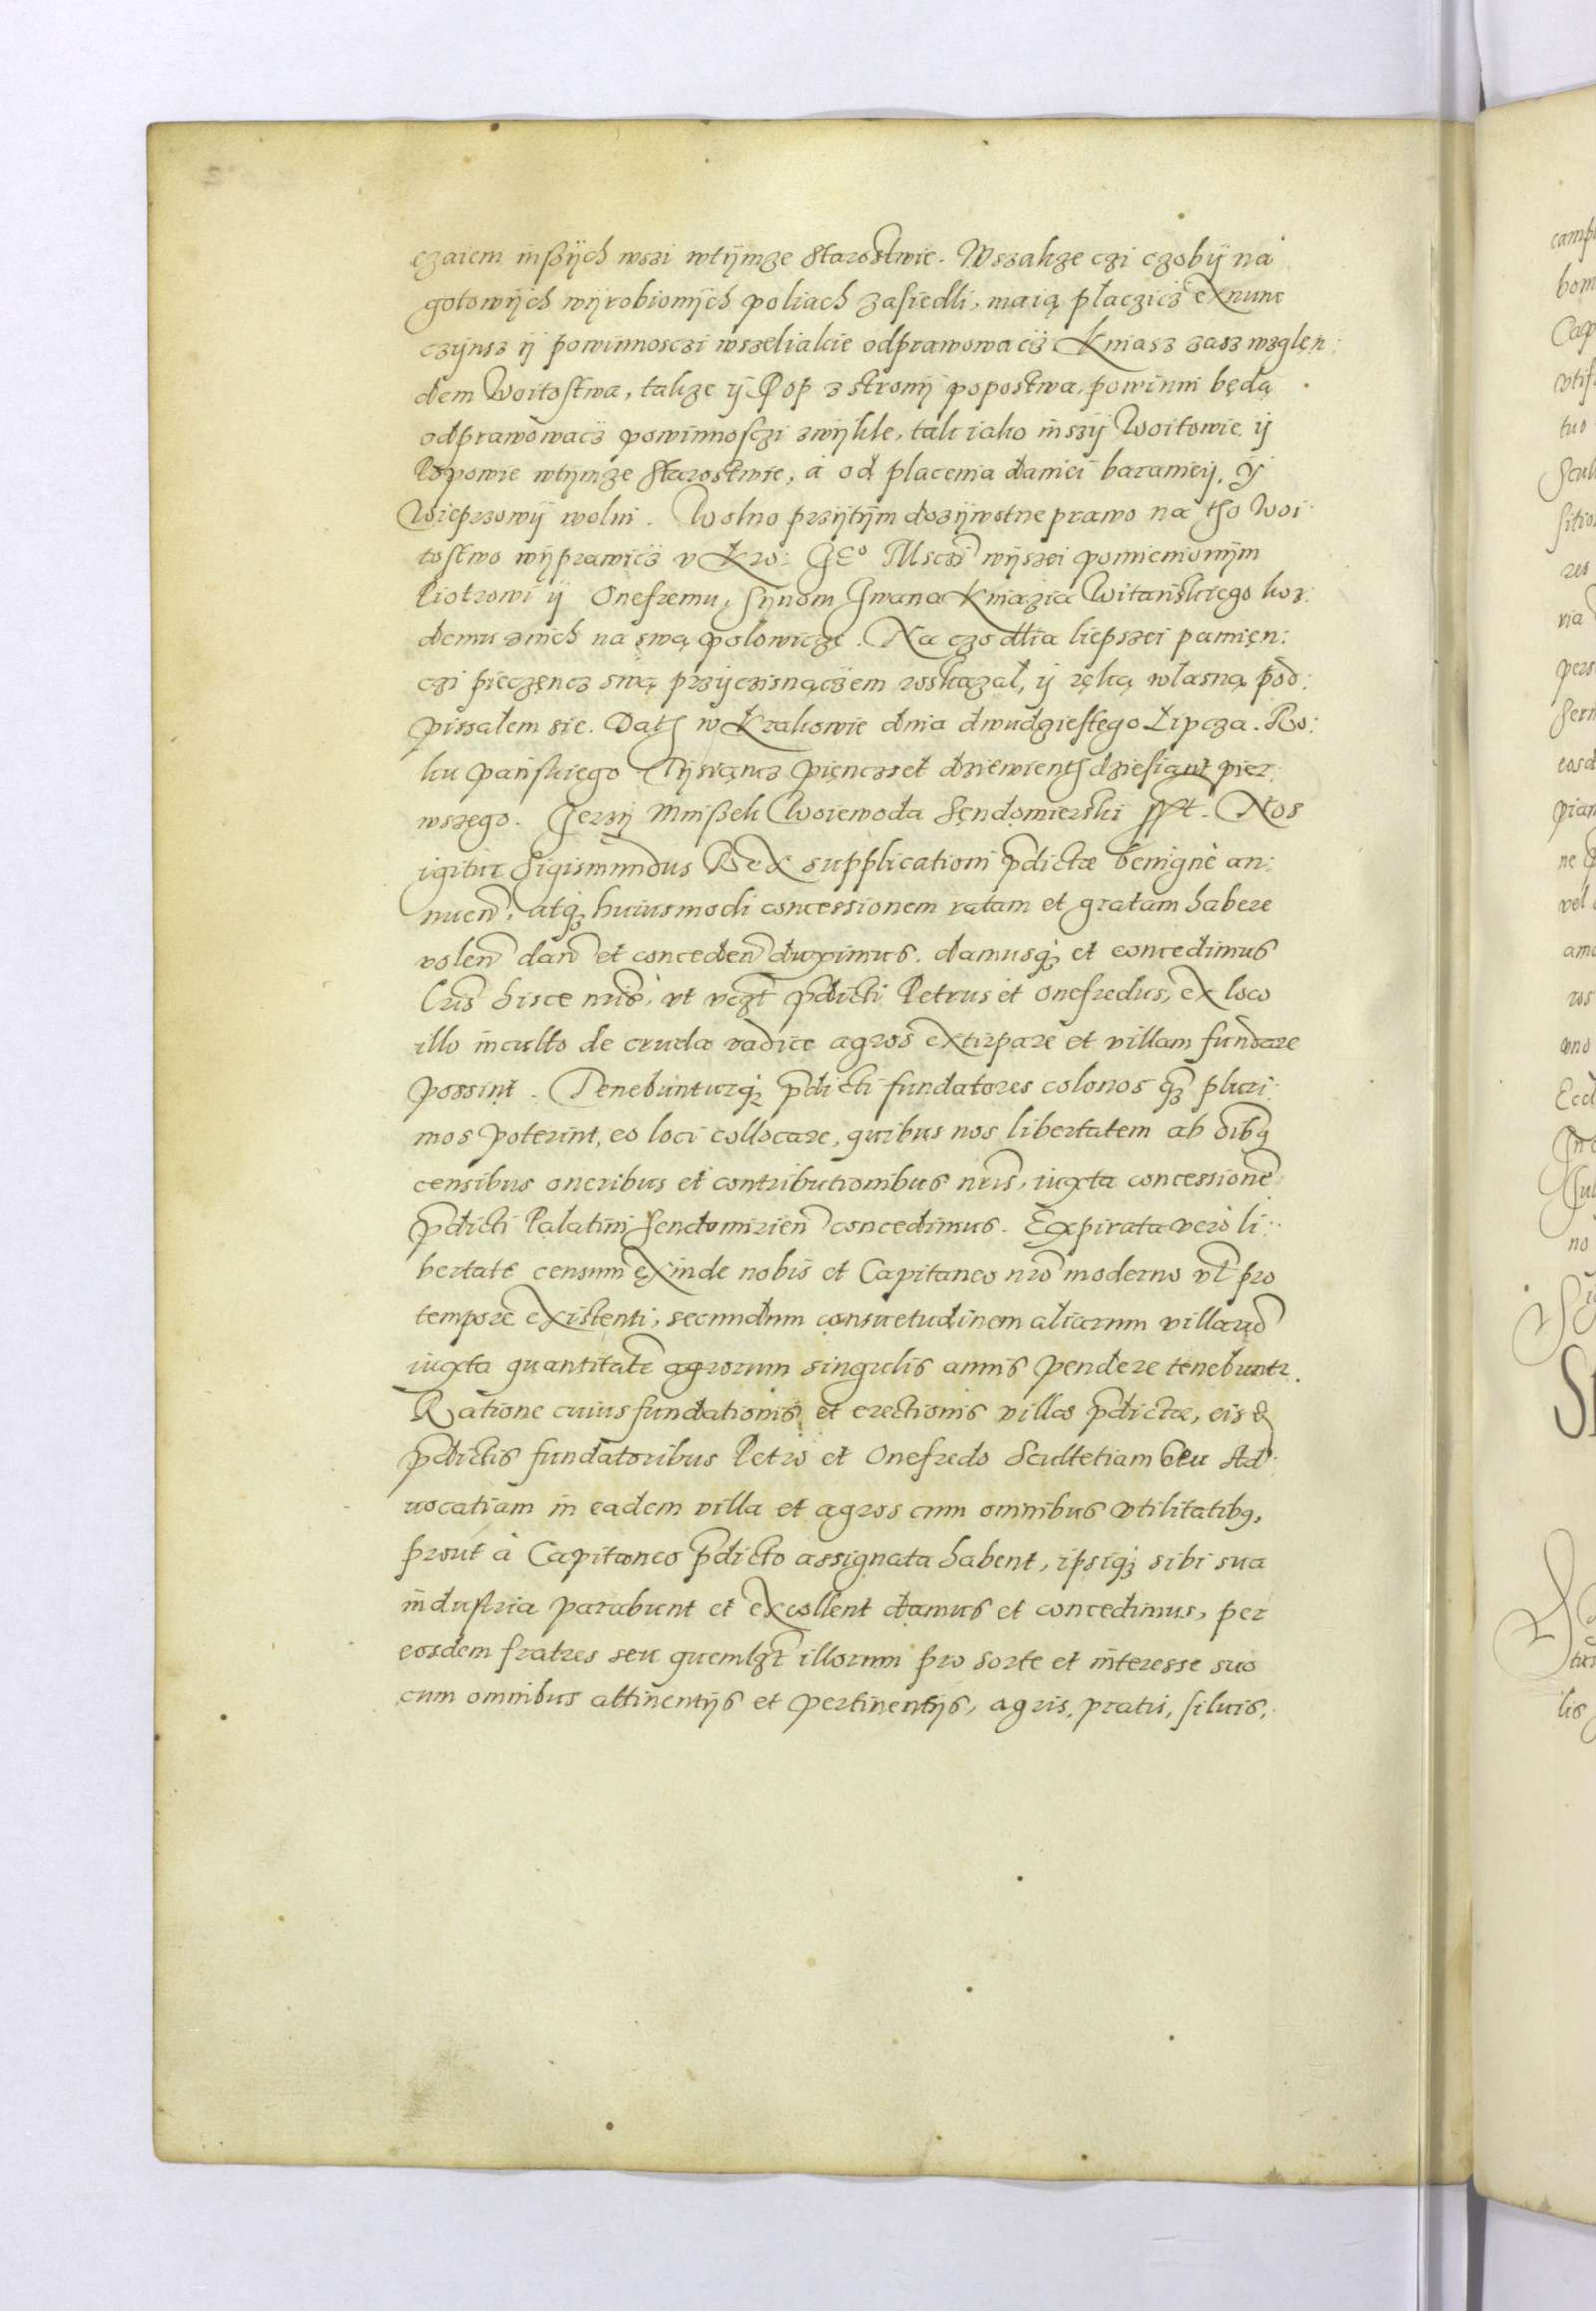 czaiem inßÿch wszi wtÿmze Starostwie. Wszakze czi czobÿ na
gotowÿch wÿrobionÿch poliach zasiedli, maią płaczicz ex nunc
czÿnsz ÿ powinnosczi wszeliakie odprawowacz Kniasz zasz wzglęn:
dem Woitostwa, takze ÿ Pop z stronÿ popostwa, powinni będą
odprawowacz powinnosczi zwÿkle, tak iako inszÿ Woitowie ÿ
Popowie wtÿmze Starostwie, á od placenia daniei baraniei, ÿ
Wieprzowÿ wolni. Wolno przÿtÿm dozÿwotne prawo na tho Woi
tostwo wÿprawicz v Kro: Jeº Msczi wÿszei pomienionÿm
Piotrowi ÿ Onefremu, sÿnom Jwana Kniazia Witanskiego koz:
demu znich na swą polowiczę. Na czo dlia liepszei pamięn:
czi pieczęncz swą przÿczisnączem roskazał, ÿ ręką własną pod:
pissałem sie. Dath w Krakowie dnia dwudziestego Lipcza. Ro:
ku pańskiego Tÿsiąncz pięnczset dziewienthdziesiant pier:
wszego. Jerzÿ Mnißek Woiewoda Sęndomierski sst. Nos
igitur Sigismundus Rex supplicationi pdictæ benignè an:
nuen, atq huiusmodi concessionem ratam et gratam habere
volen dan et conceden duximus. damusq et concedimus
Lris hisce nris, vt vczt pdicti Petrus et Onefredus, ex loco
illo inculto de cruda radice agros extirpare et villam fundare
possint. Tenebunturq pdicti fundatores colonos q pluri:
mos poterint, eo loci collocare, quibus nos libertatem ab oibq
censibus oneribus et contributionibus nris, iuxta concessione
pdicti Palatini Sendomirien concedimus. Expirata verò li:
bertate censum exinde nobis et Capitaneo nro moderno vl pro
tempore existenti, secundum consuetudinem aliarum villaru
iuxta quantitate agrorum singulis annis pendere tenebuntr.
Ratione cuius fundationis et erectionis villæ pdictæ, eisd
pdictis fundatoribus Petro et Onefredo Scultetiam seu Ad:
uocatiam in eadem villa et agros cum omnibus vtilitatibq,
prout à Capitaneo pdicto assignata habent, ipsiq sibi sua
industria parabunt et excollent damus et concedimus, per
eosdem fratres seu quemlzt illorum pro sorte et interesse suo
cum omnibus attinentijs et pertinentijs, agris, pratis, siluis,